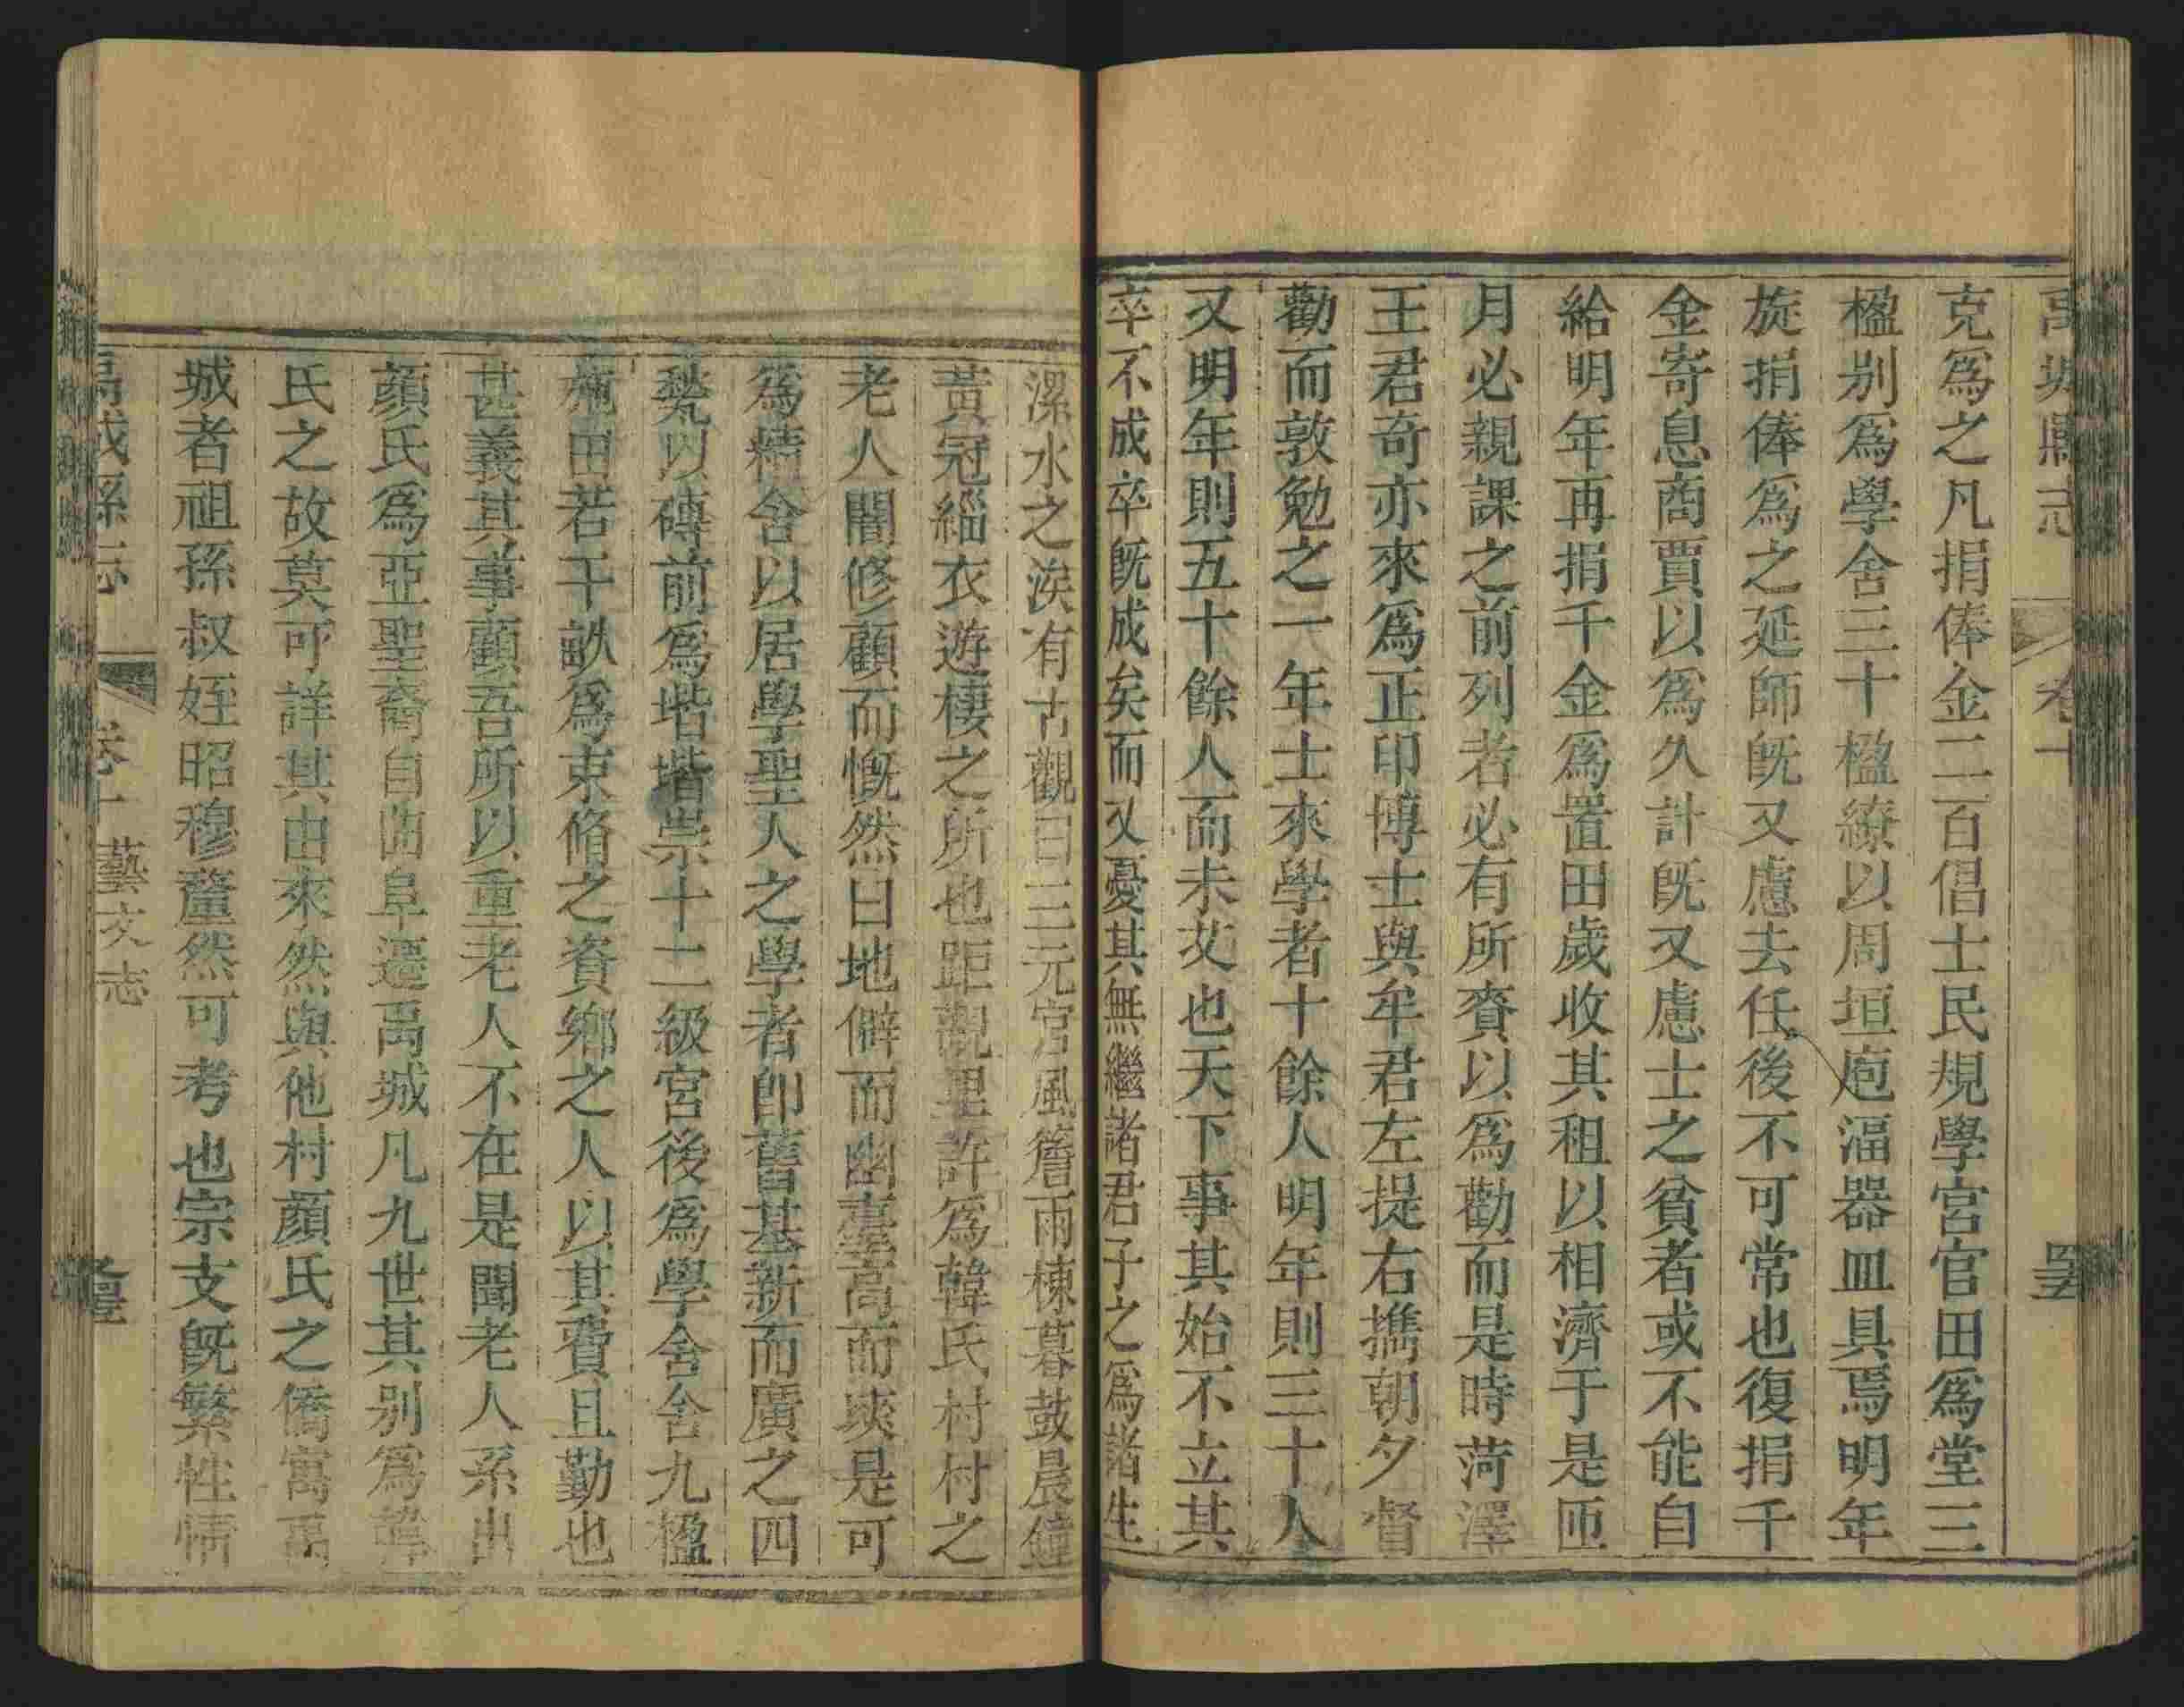 禹城縣志
卷十
克爲之凡捐俸金二百倡士民規學宮官田爲堂三
楹别爲學舍三十楹繚以周垣庖湢器皿具焉明年
旋捐俸爲之延師旣又慮去任後不可常也復捐千
金寄息商賈以爲久計旣又慮士之貧者或不能自
給明年再捐千金爲置田歲收其租以相濟于是匝
月必親課之前列者必有所賚以爲勸而是時菏澤
王君奇亦來爲正印博士與牟君左提右攜朝夕督
勸而敦勉之一年士來學者十餘人明年則三十人
又明年則五十餘人而未艾也天下事其始不立其
卒不成卒旣成矣而又憂其無繼諸君子之爲諸生
漯水之涘有古觀曰三元宮風簷雨棟暮鼓晨鐘
黃冠緇衣遊棲之所也距觀里許爲韓氏村村之
老人闇修顧而慨然曰地僻而幽臺高而塽是可
爲精舍以居學聖人之學者卽舊基新而廣之四
甃以磚前爲堦堦崇十二級宮後爲學舍舍九楹
施田若干畝爲束脩之資鄉之人以其費且勤也
甚義其事顧吾所以重老人不在是聞老人系出
顏氏爲亞聖裔自曲阜遷禹城凡九世其别爲韓
氏之故莫可詳其由來然與他村顏氏之僑寓禹
城者祖孫叔姪昭穆釐然可考也宗支旣繁性情
禹城縣志
卷十
藝文志